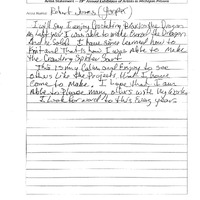 Artist Statement – 18th Annual Exhibition of Artists in Michigan Prisons
Robert Jones (Yoopie)
I will say I enjoy Crocheting Baraka the Dragon
As last year I was able to make Carol the Dragon
And he Sold. I have since learned how to
Knit and That is how I was Able to Make
the Crawling Spider Scarf.
This is my Calm and Enjoy to see
others Like the Projects that I have
Come to Make. I hope that I am
Able to Please many others with my works
I Look forward to this Every years